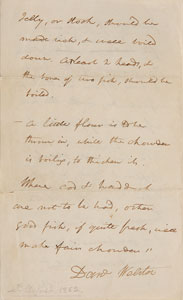 Jelly, or Stock, should be
made rich, & well boiled
down. At least 2 heads, &
the bones of two fish, should be
boiled.
– A little flour is to be
thrown in, while the chowder
is boiling, to thicken it.
Where cod & haddock
are not to be had, other
good fish, if quite fresh, will
make fair chowder"